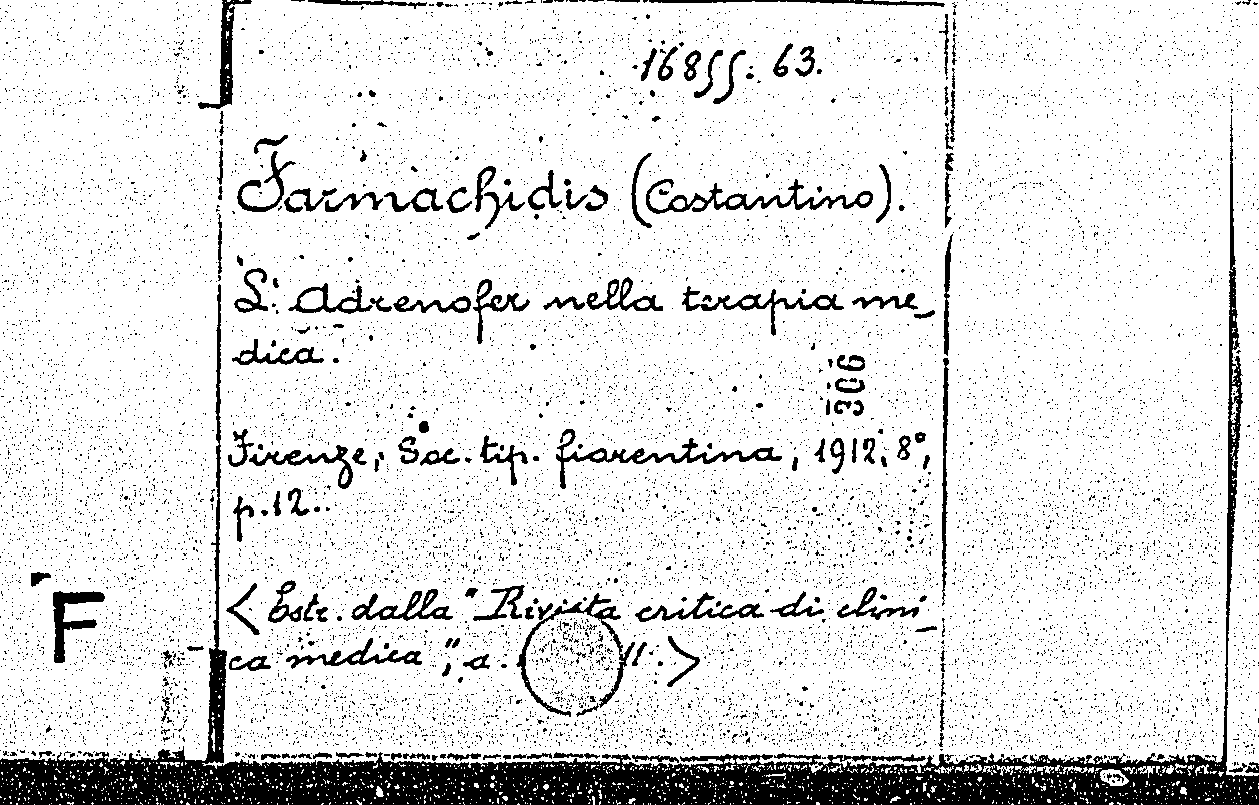 16855: 63.
Farmachidis (Costantino).
L' Adrenofer nella terapia me_
dica.
306
Firenze, Soc. tip. fiorentina, 1912, 8°,
p. 12..
F
< Estr. dalla "Rivista critica di clini_
ca medica", a.